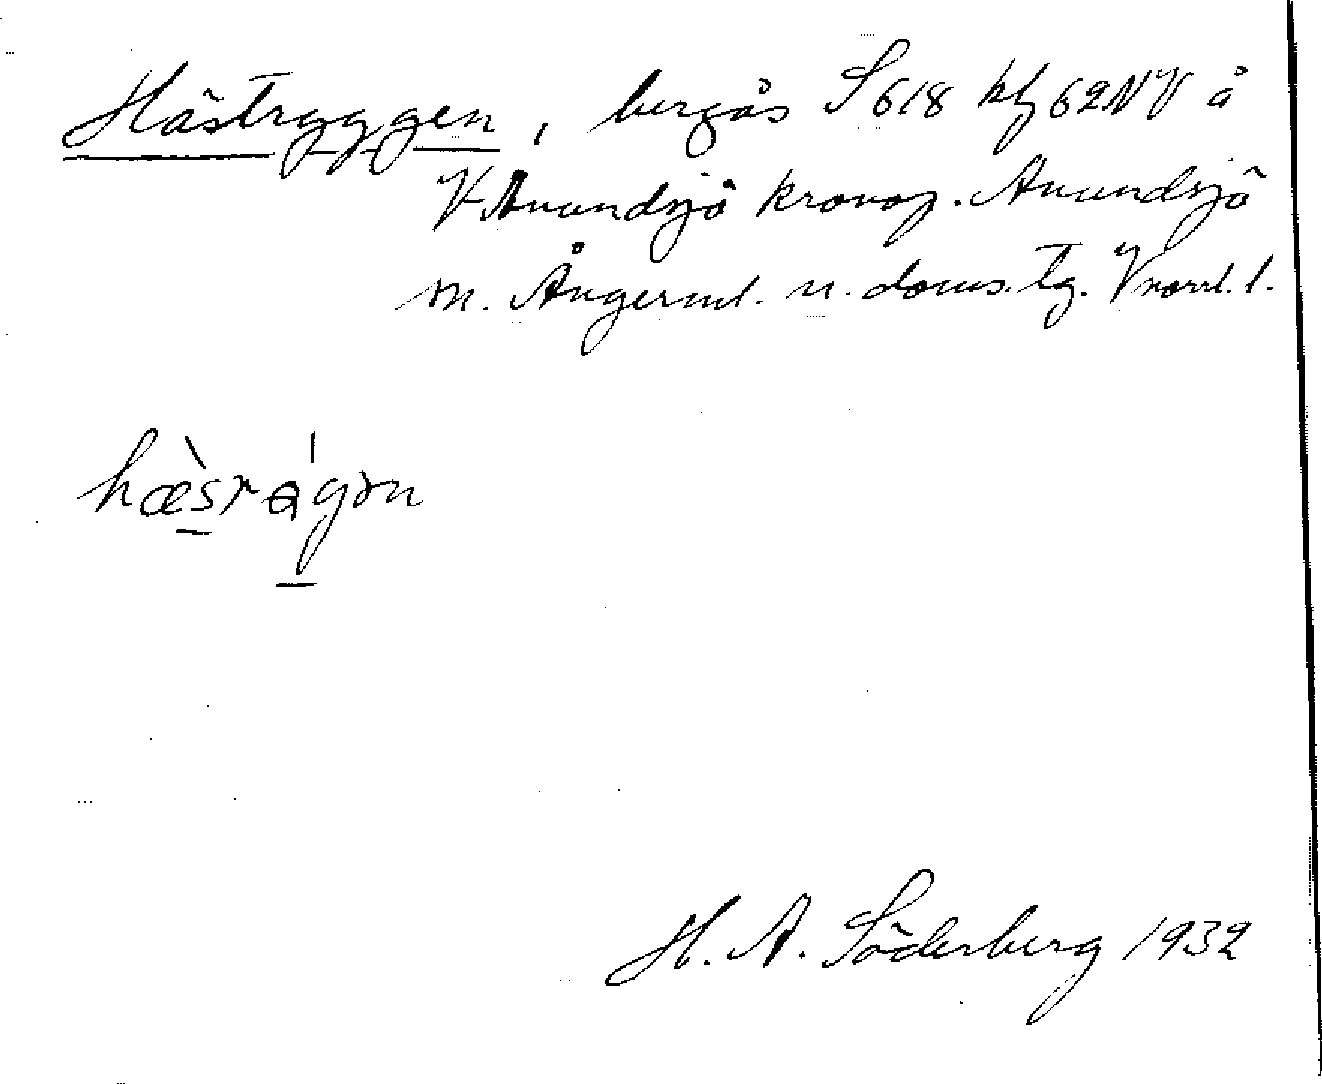 Hästryggen, bergås S 618 kbl 62 NV å
V Anundsjö kronop. Anundsjö
sn. Ångerml. n. doms. tg. Vnorrl. l.
hæ̀srɵ́gən
H. A. Söderberg 1932